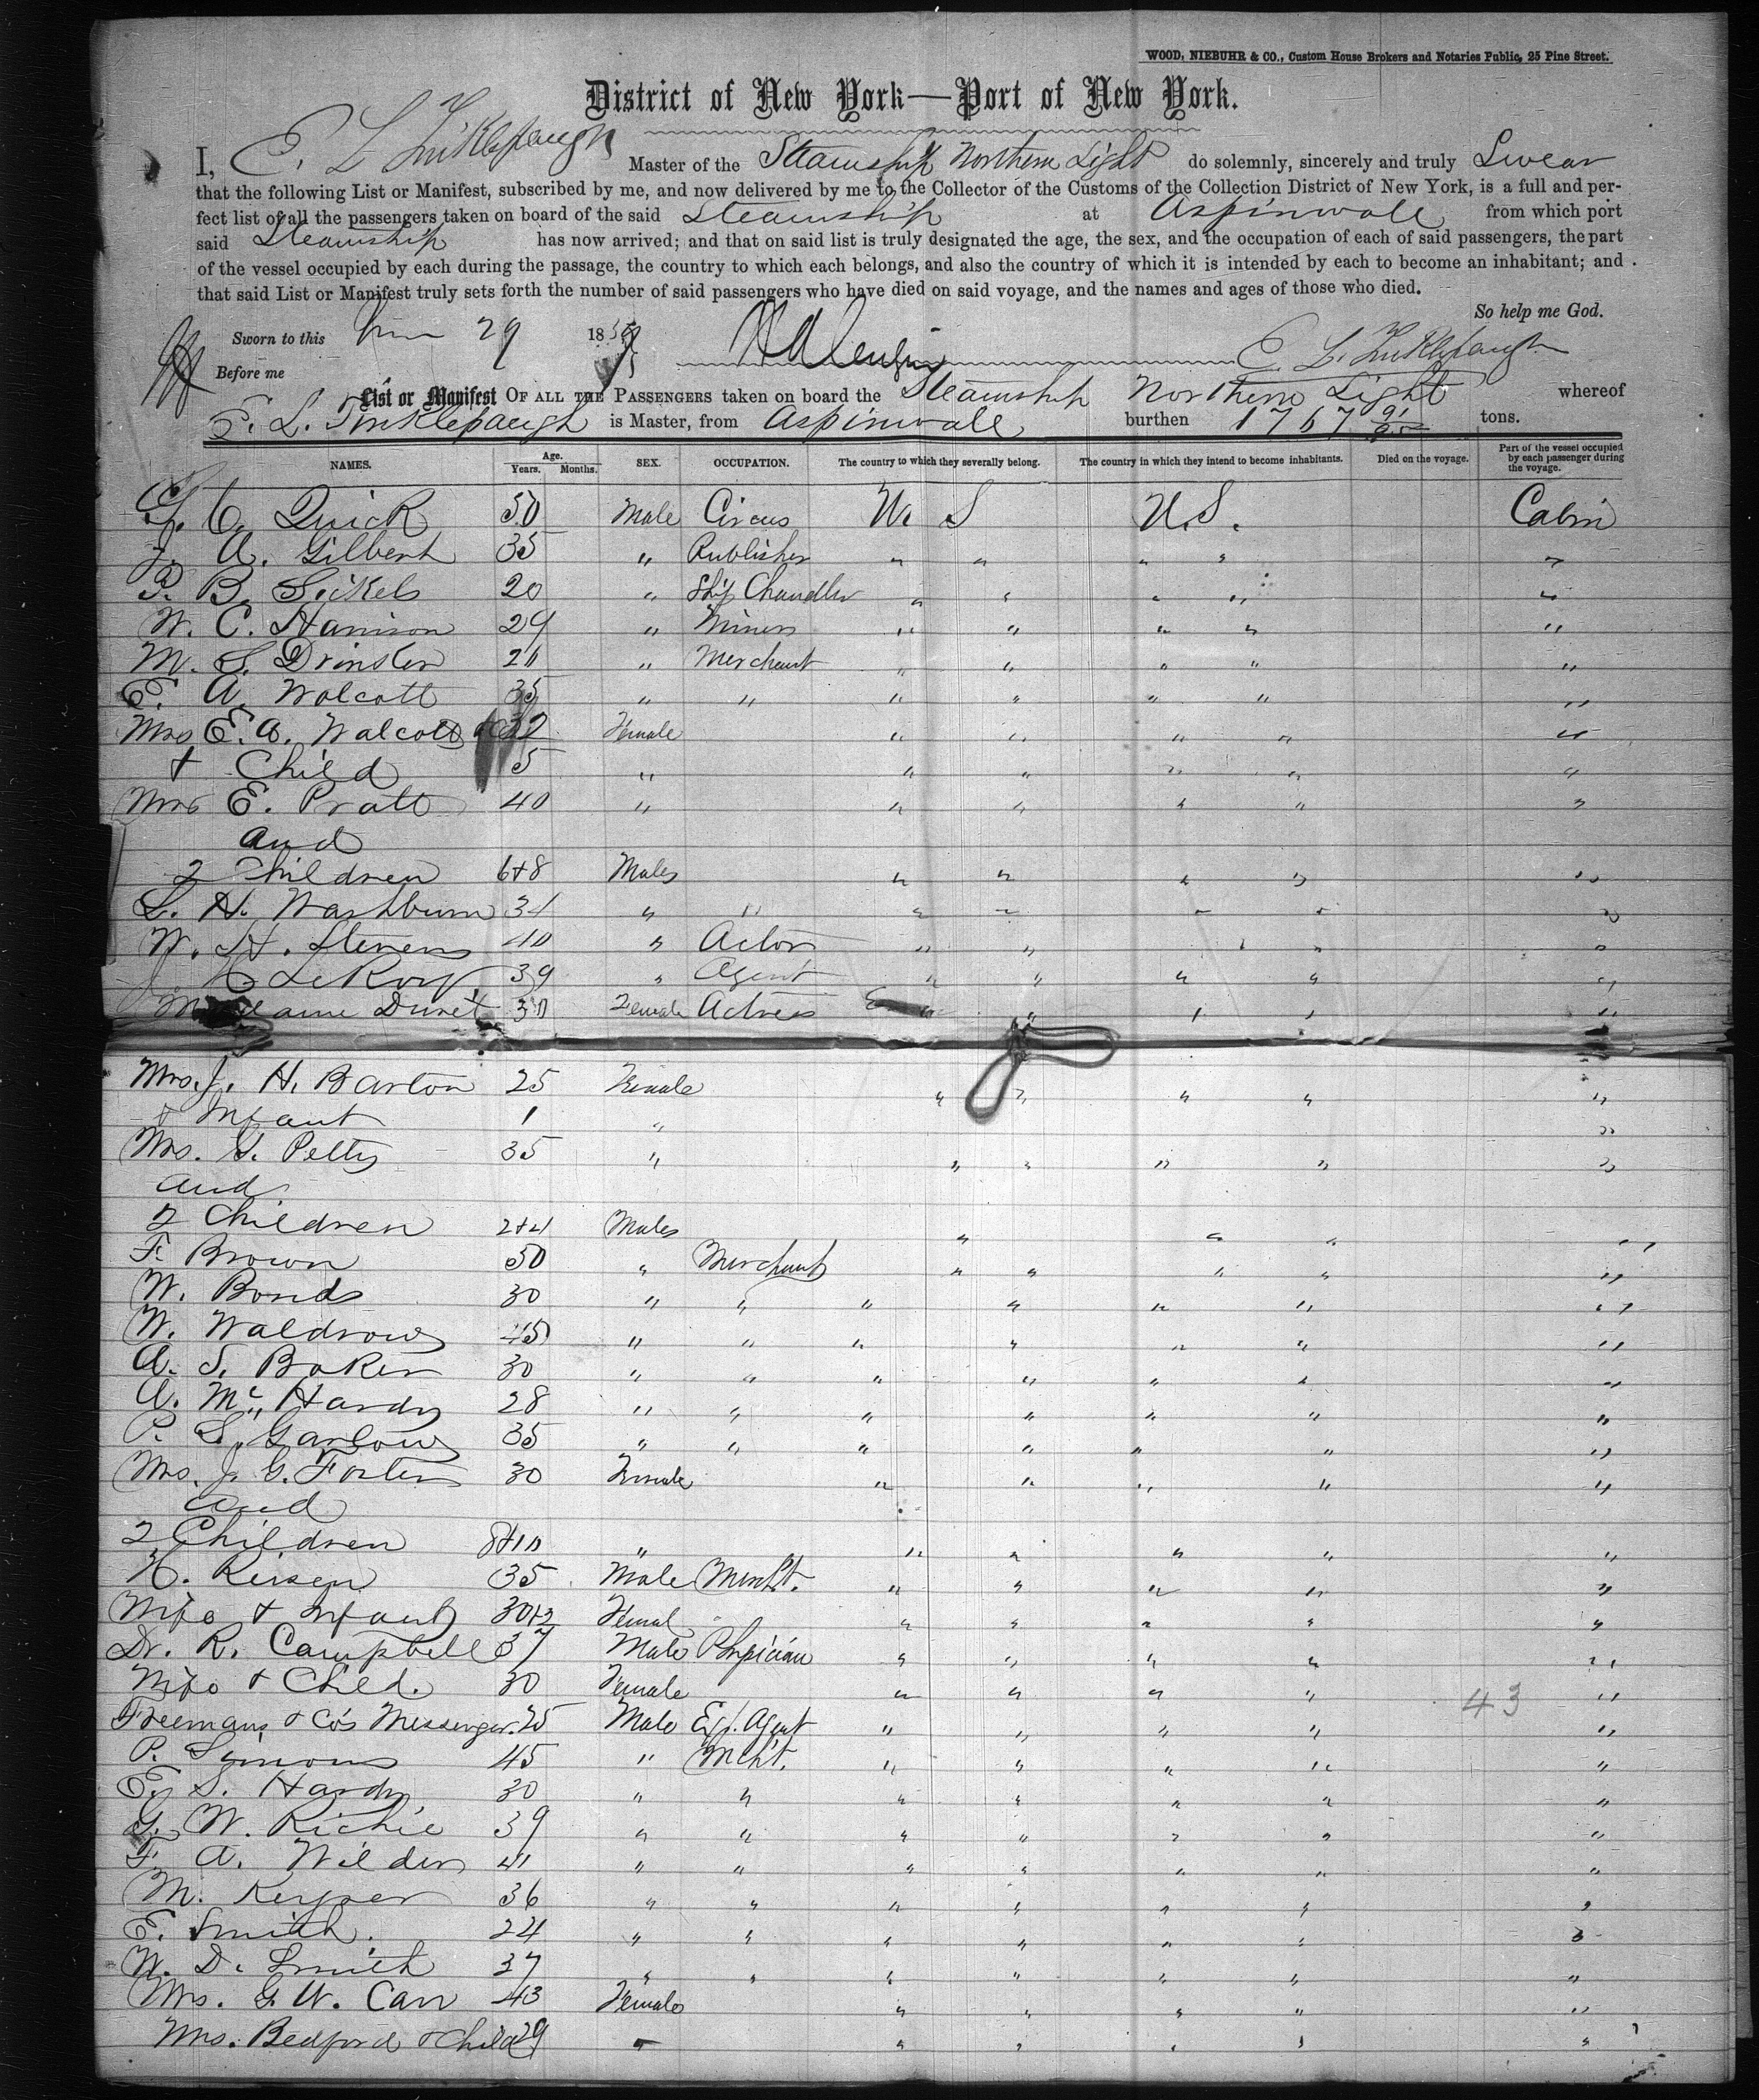 WOOD, NIEBUHR & CO., Custom House Brokers and Notaries Public, 25 Pine Street.
District of New York—Port of New York.
I, E. L. Tinklepaugh Master of the Steamship Northern Light do solemnly, sincerely and truly Swear
that the following List or Manifest, subscribed by me, and now delivered by me to the Collector of the Customs of the Collection District of New York, is a full and per-
fect list of all the passengers taken on board of the said Steamship at Aspinwall from which port
said Steamship has now arrived; and that on said list is truly designated the age, the sex, and the occupation of each of said passengers, the part
of the vessel occupied by each during the passage, the country to which each belongs, and also the country of which it is intended by each to become an inhabitant; and
that said List or Manifest truly sets forth the number of said passengers who have died on said voyage, and the names and ages of those who died.
So help me God.
Sworn to this 29 18 E. L. Tinklepaugh
Before me
List or Manifest OF ALL THE PASSENGERS taken on board the Steamship Northern Light whereof
E. L. Tinklepaugh is Master, from Aspinwall burthen 1767 91/95 tons.
NAMES. Age. Years. Months. SEX. OCCUPATION. The country to which they severally belong. The country in which they intend to become inhabitants. Died on the voyage. Part of the vessel occupied by each passenger during the voyage.
G. C. Quick 50 Male Circus U. S U.S. Cabin
J. A. Gilbert 35 " Publisher " " " " "
P. B. Sickels 20 " Ship Chandler " " " " "
W. C. Harrison 29 " Miner " " " " "
M. S. Drinker 21 " Merchant " " " " "
E. A. Wolcott 35 " " " " " " "
Mrs E. A. Walcott 32 Female " " " " "
+ Child 5 " " " " " "
Mrs E. Pratt 40 " " " " " "
and
2 Children 6+8 Males " " " " "
L. H. Washburn 34 " " " " " " "
W. H. Stevens 40 " Actor " " " " "
LeRoy 39 " Agent " " " " "
Madame Duret 30 Female Actress " " " " "
Mrs. J. H. Barton 25 Female " " " " "
+ Infant 1 " "
Mrs. G. Petty 35 " " " " " "
and
2 Children 2+4 Males " " " "
F. Brown 50 " Merchant " " " " "
W. Bonds 30 " " " " " " "
W. Waldrow 45 " " " " " " "
A. S. Baker 30 " " " " " " "
A. Mc Hardy 28 " " " " " " "
P. S. Garlow 35 " " " " " " "
Mrs. J. G. Foster 30 Female " " " " "
and
2 Children 8+10 " " " " " "
H. Reisen 35 Male Mercht. " " " " "
Wife + Infant 30+2 Femal " " " " "
Dr. R. Campbell 37 Male Physician " " " " "
Wife + Child. 30 Female " " " " 43 "
Freemans + Co's Messenger 25 Male Exp. Agent " " " " "
P. Simons 45 " Mcht. " " " " "
E. S. Hardy 30 " " " " " " "
G. W. Richie 39 " " " " " " "
F. A. Wilder 41 " " " " " " "
M. Keyser 36 " " " " " " "
E. Smith. 24 " " " " " " "
W. D. Smith 37 " " " " " " "
Mrs. G. W. Carr 43 Female " " " " "
Mrs. Bedford + Child 29 " " " " " "